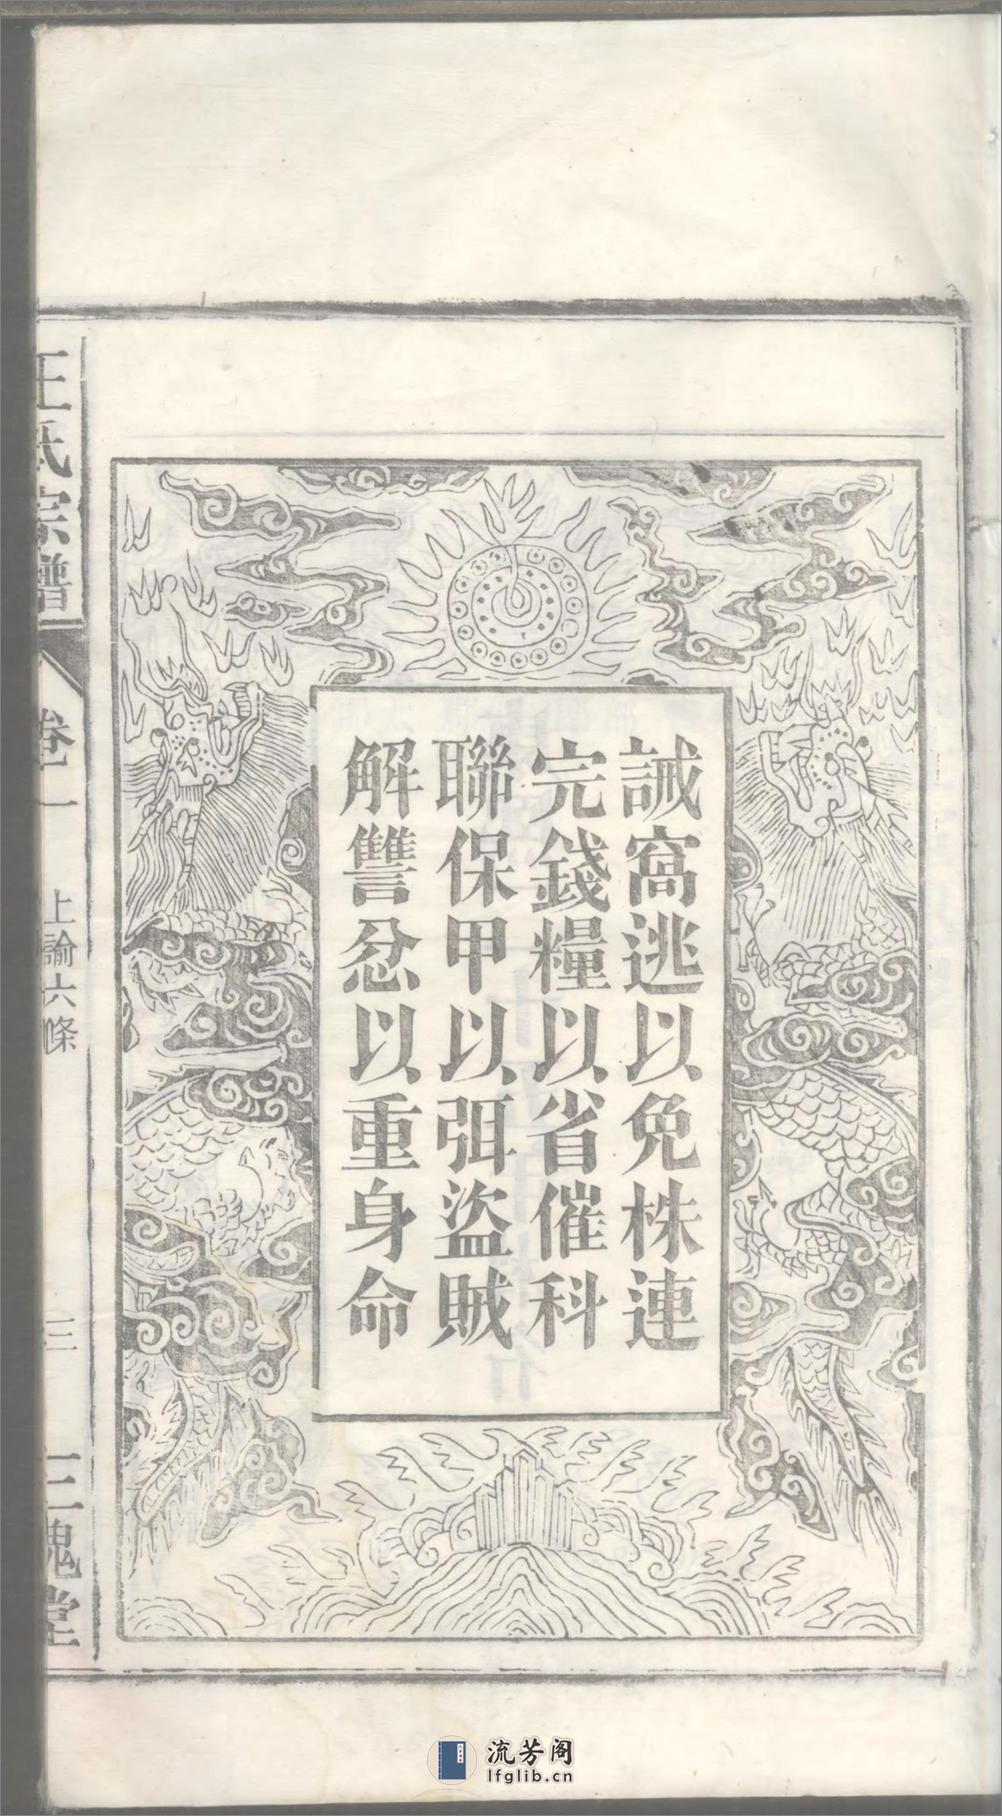 誡窩逃以免株連
完錢糧以省催科
聯保甲以弭盜賊
解讐忿以重身命
王氏宗譜
卷一
上諭六條
三
三槐堂
流芳阁
lfglib.cn